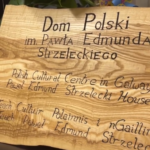 Dom Polski
im. Pawła Edmunda
Strzeleckiego
Polish Cultural Centre in Galway
Paweł Edmund Strzelecki House
Cultúr Polainnis i nGaillimh
Edmund Strzelecki